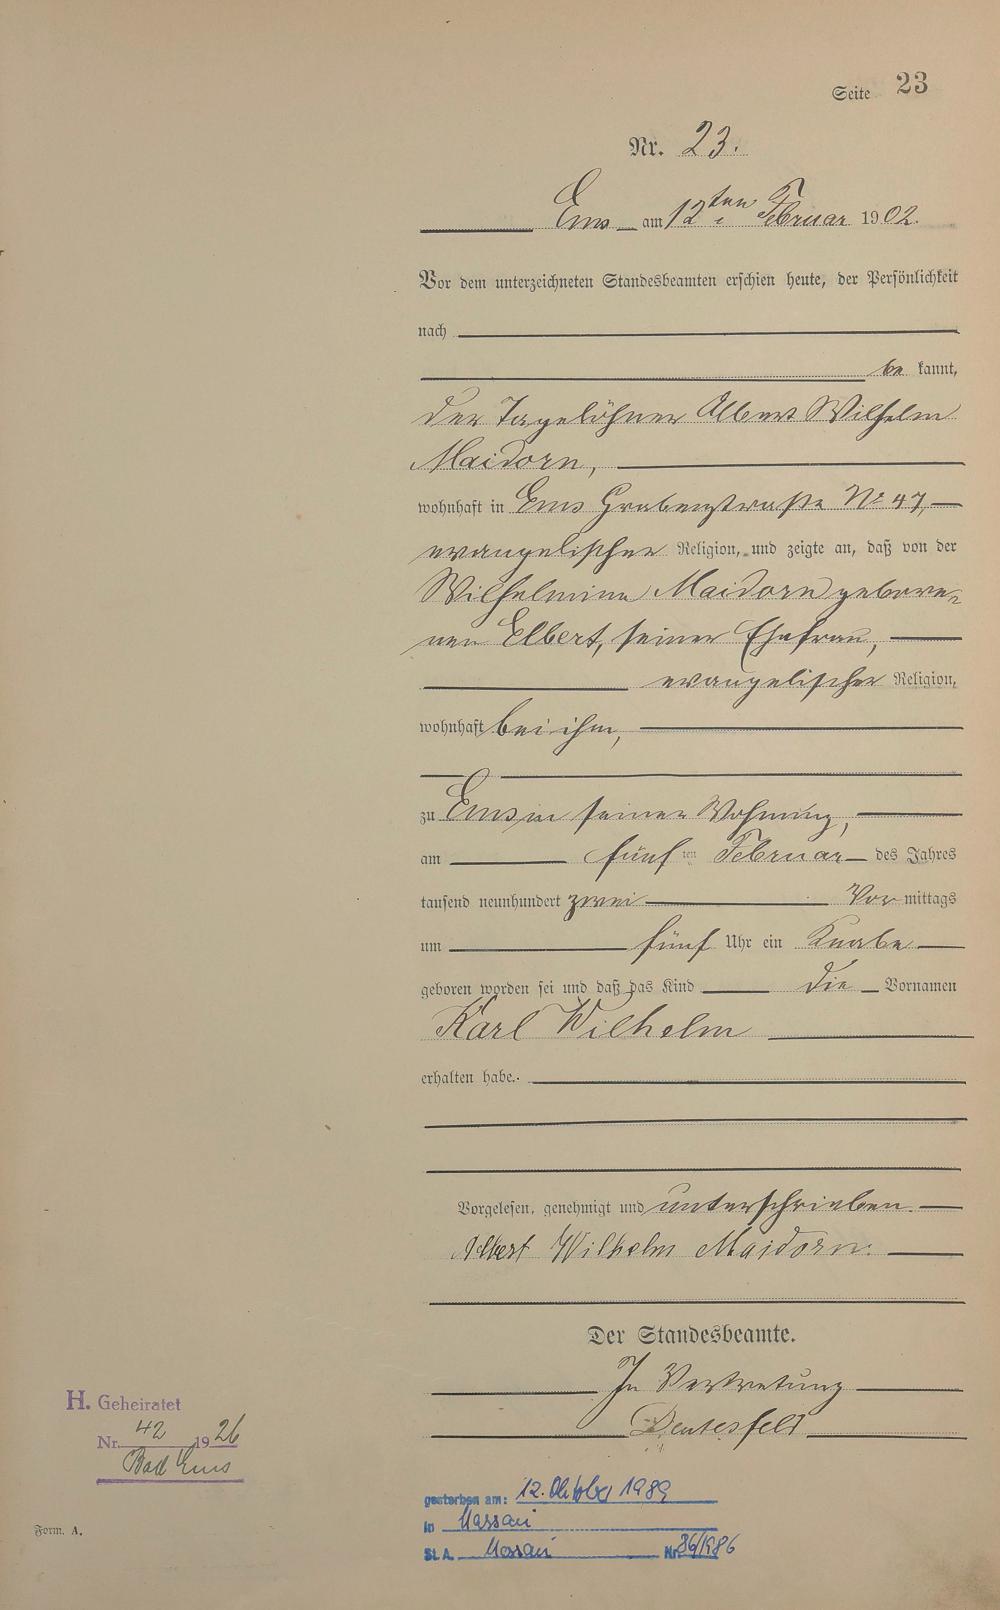 Seite 23
Nr. 23.
Ems am 12ten Februar 1902.
Vor dem unterzeichneten Standesbeamten erschien heute, der Persönlichkeit
nach
be kannt,
der Tagelöhner Albert Wilhelm
Maidorn,
wohnhaft in Ems Grabenstraße No 47,
evangelischer Religion, und zeigte an, daß von der
Wilhelmine Maidorn gebore-
nen Elbert, seiner Ehefrau,
evangelischer Religion,
wohnhaft bei ihm,
zu Ems in seiner Wohnung,
am fünf ten Februar des Jahres
tausend neunhundert zwei Vor mittags
um fünf Uhr ein Knabe
geboren worden sei und daß das Kind die Vornamen
Karl Wilhelm
erhalten habe.
Vorgelesen, genehmigt und unterschrieben.
Albert Wilhelm Maidorn.
Der Standesbeamte.
In Vertretung
H. Geheiratet
Nr. 42 1926
Bad Ems
gestorben am: 12. Oktober 1989
in Nassau
St. A. Nassau Nr.
Form. A.